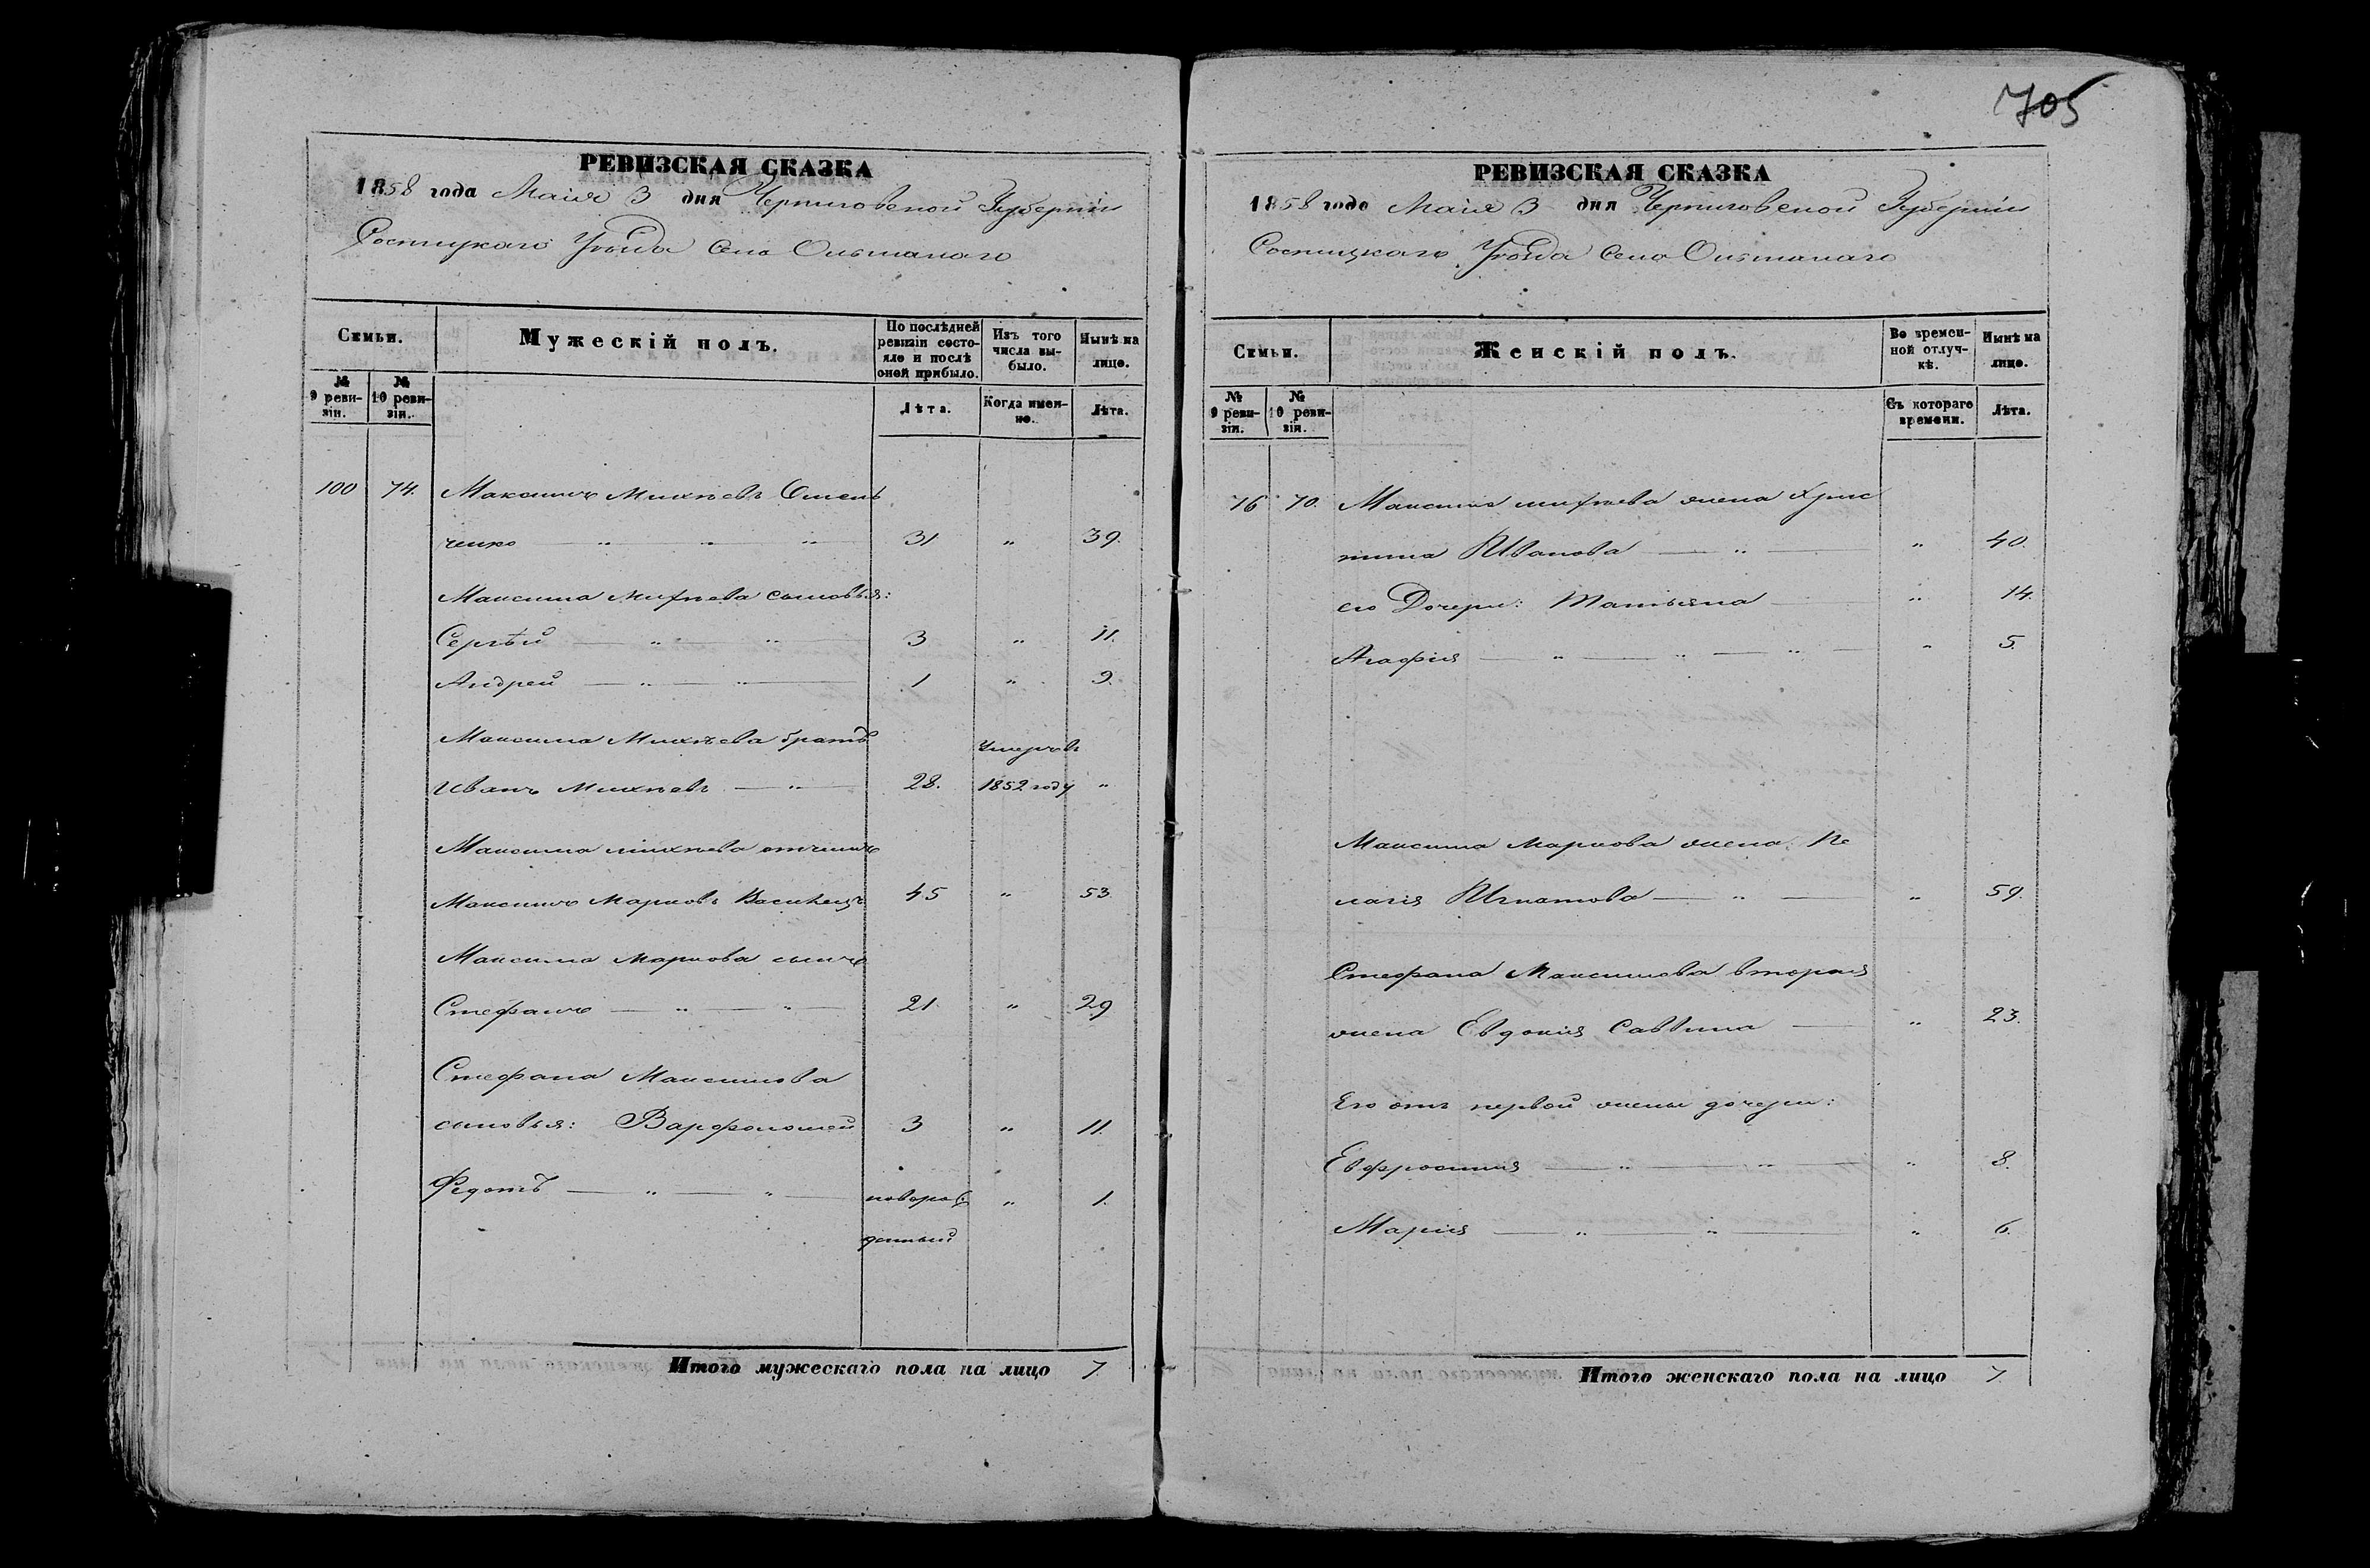 705
РЕВИЗСКАЯ СКАЗКА
1858 года Маія 3 дня Черниговской Губерніи
Сосницкаго Уѣзда Села Ольшанаго
Семьи.
Мужескій полъ.
По послѣдней ревизіи состояло и послѣ оной прибыло.
Изъ того числа выбыло.
Нынѣ на лицо.
№ 9 ревизіи.
№ 10 ревизіи.
Лѣта.
Когда именно.
Лѣта.
100 74. Максимъ Михѣевъ
ченко — „ „ „ 31 „ 39.
Максима Михѣева сыновья:
Сергѣй — „ — „ — 3 „ 11.
Андрей — „ — „ — 1 „ 9.
Максима Михѣева братъ умеръ въ
Иванъ Михѣевъ — „ — 28. 1852 году „
Максима Михѣева отчимъ
Максимъ Марковъ 45 „ 53.
Максима Маркова сынъ
Стефанъ — „ — „ — 21. „ 29
Стефана Максимова
сыновья: Варфоломей 3 „ 11.
Федотъ — „ — „ — новорож „ 1.
денный
Итого мужескаго пола на лицо 7.
РЕВИЗСКАЯ СКАЗКА
1858 года Маія 3 дня Черниговской Губерніи
Сосницкаго Уѣзда Села Ольшанаго
Семьи.
Женскій полъ.
Во временной отлучкѣ.
Нынѣ на лицо.
№ 9 ревизіи.
№ 10 ревизіи.
Съ котораго времени.
Лѣта.
76 70. Максима Михѣева жена Хрис
тина Иванова — „ — „ 40.
его Дочери: Татьяна — „ 14.
Агафія — „ — „ — „ — „ 5.
Максима Маркова жена Пе
лагія Игнатова — „ — „ 59.
Стефана Максимова вторая
жена Евдокія Саввина — „ 23.
Его отъ первой жены дочери:
Евфросинія — „ — „ — „ 8.
Марія — „ — „ — „ 6.
Итого женскаго пола на лицо 7.